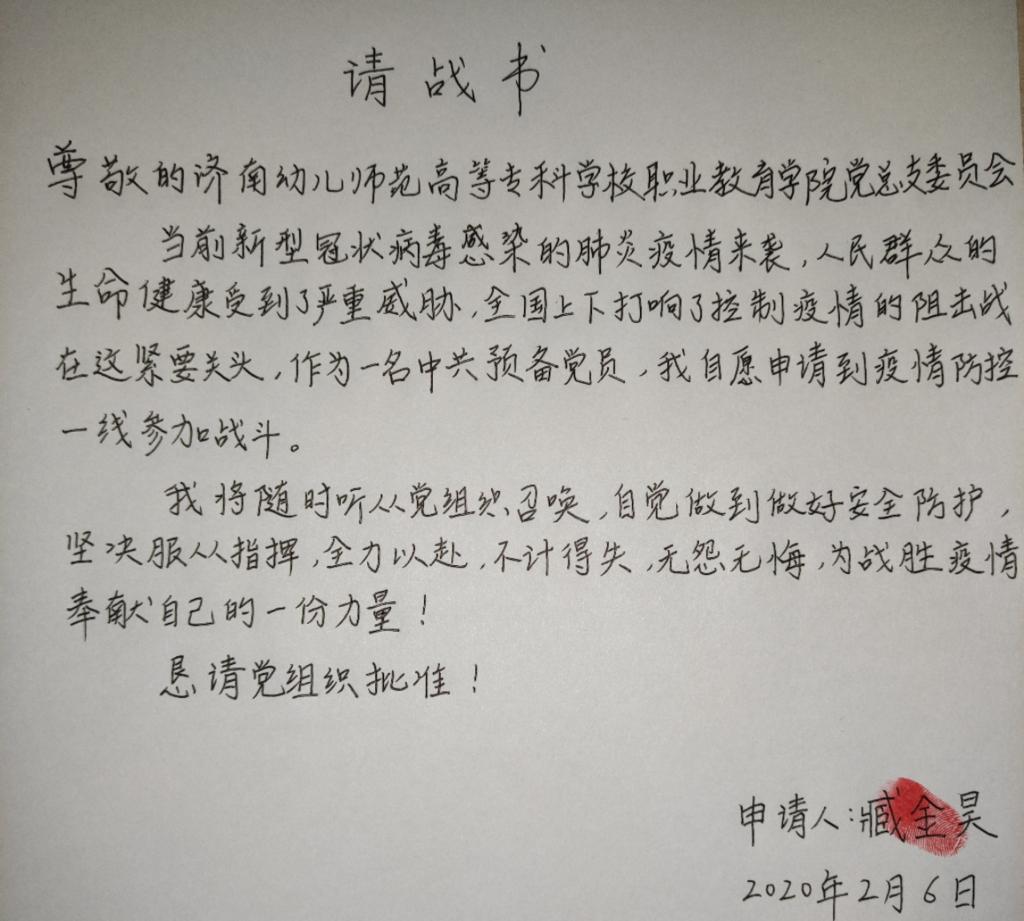 请战书
尊敬的济南幼儿师范高等专科学校职业教育学院党总支委员会
当前新型冠状病毒感染的肺炎疫情来袭，人民群众的
生命健康受到了严重威胁，全国上下打响了控制疫情的阻击战
在这紧要关头，作为一名中共预备党员，我自愿申请到疫情防控
一线参加战斗。
我将随时听从党组织召唤，自觉做到做好安全防护，
坚决服从指挥，全力以赴，不计得失，无怨无悔，为战胜疫情
奉献自己的一份力量！
恳请党组织批准！
申请人：臧金昊
2020年2月6日